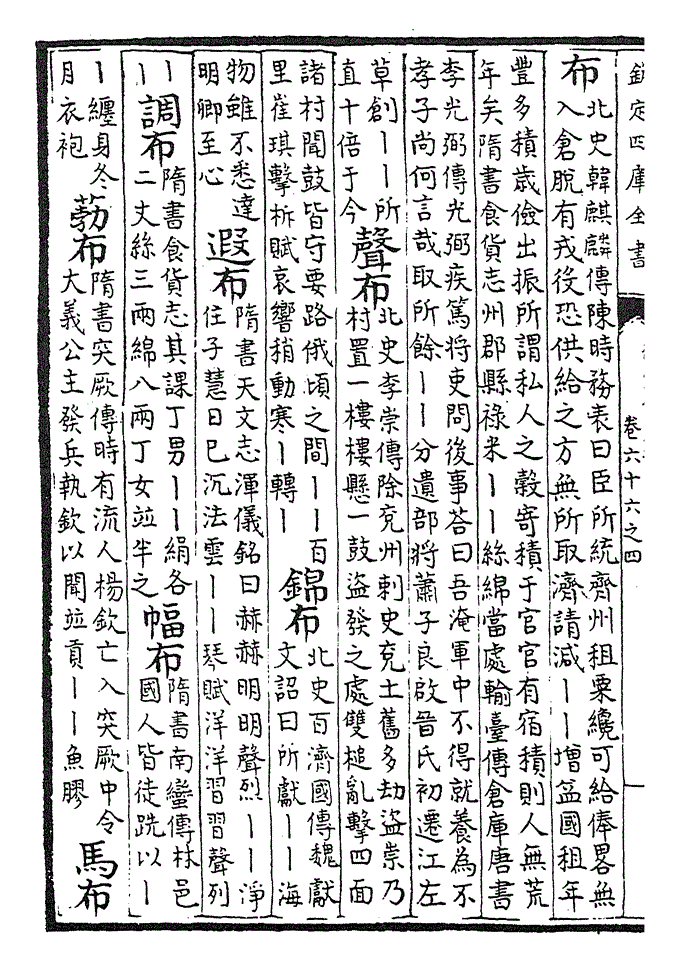 欽定四庫全書
卷六十六之四
布
北史韓麒麟傳陳時務表曰臣所統齊州租粟纔可給俸畧無
入倉脫有戎役恐供給之方無所取濟請減丨丨增益國租年
豐多積歲儉出振所謂私人之榖寄積于官官有宿積則人無荒
年矣隋書食貨志州郡縣祿米丨丨絲綿當處輸臺傳倉庫唐書
李光弼傳光弼疾篤將吏問後事荅曰吾淹軍中不得就養為不
孝子尚何言哉取所餘丨丨分遺部將蕭子良啟晉氏初遷江左
草創丨丨所
直十倍于今
聲布
北史李崇傳除兗州刺史兗土舊多劫盜崇乃
村置一樓樓懸一鼓盜發之處雙槌亂擊四面
諸村聞鼓皆守要路俄頃之間丨丨百
里崔琪擊柝賦哀響稍動寒丨轉丨
錦布
北史百濟國傳魏獻
文詔曰所獻丨丨海
物雖不悉達
明卿至心
遐布
隋書天文志渾儀銘曰赫赫明明聲烈丨丨淨
住子慧日巳沉法雲丨丨琴賦洋洋習習聲列
丨
丨
調布
隋書食貨志其課丁男丨丨絹各
二丈絲三兩綿八兩丁女竝半之
幅布
隋書南蠻傳林邑
國人皆徒跣以丨
丨纏身冬
月衣袍
葧布
隋書突厥傳時有流人楊欽亡入突厥中令
大義公主發兵執欽以聞竝貢丨丨魚膠
馬布